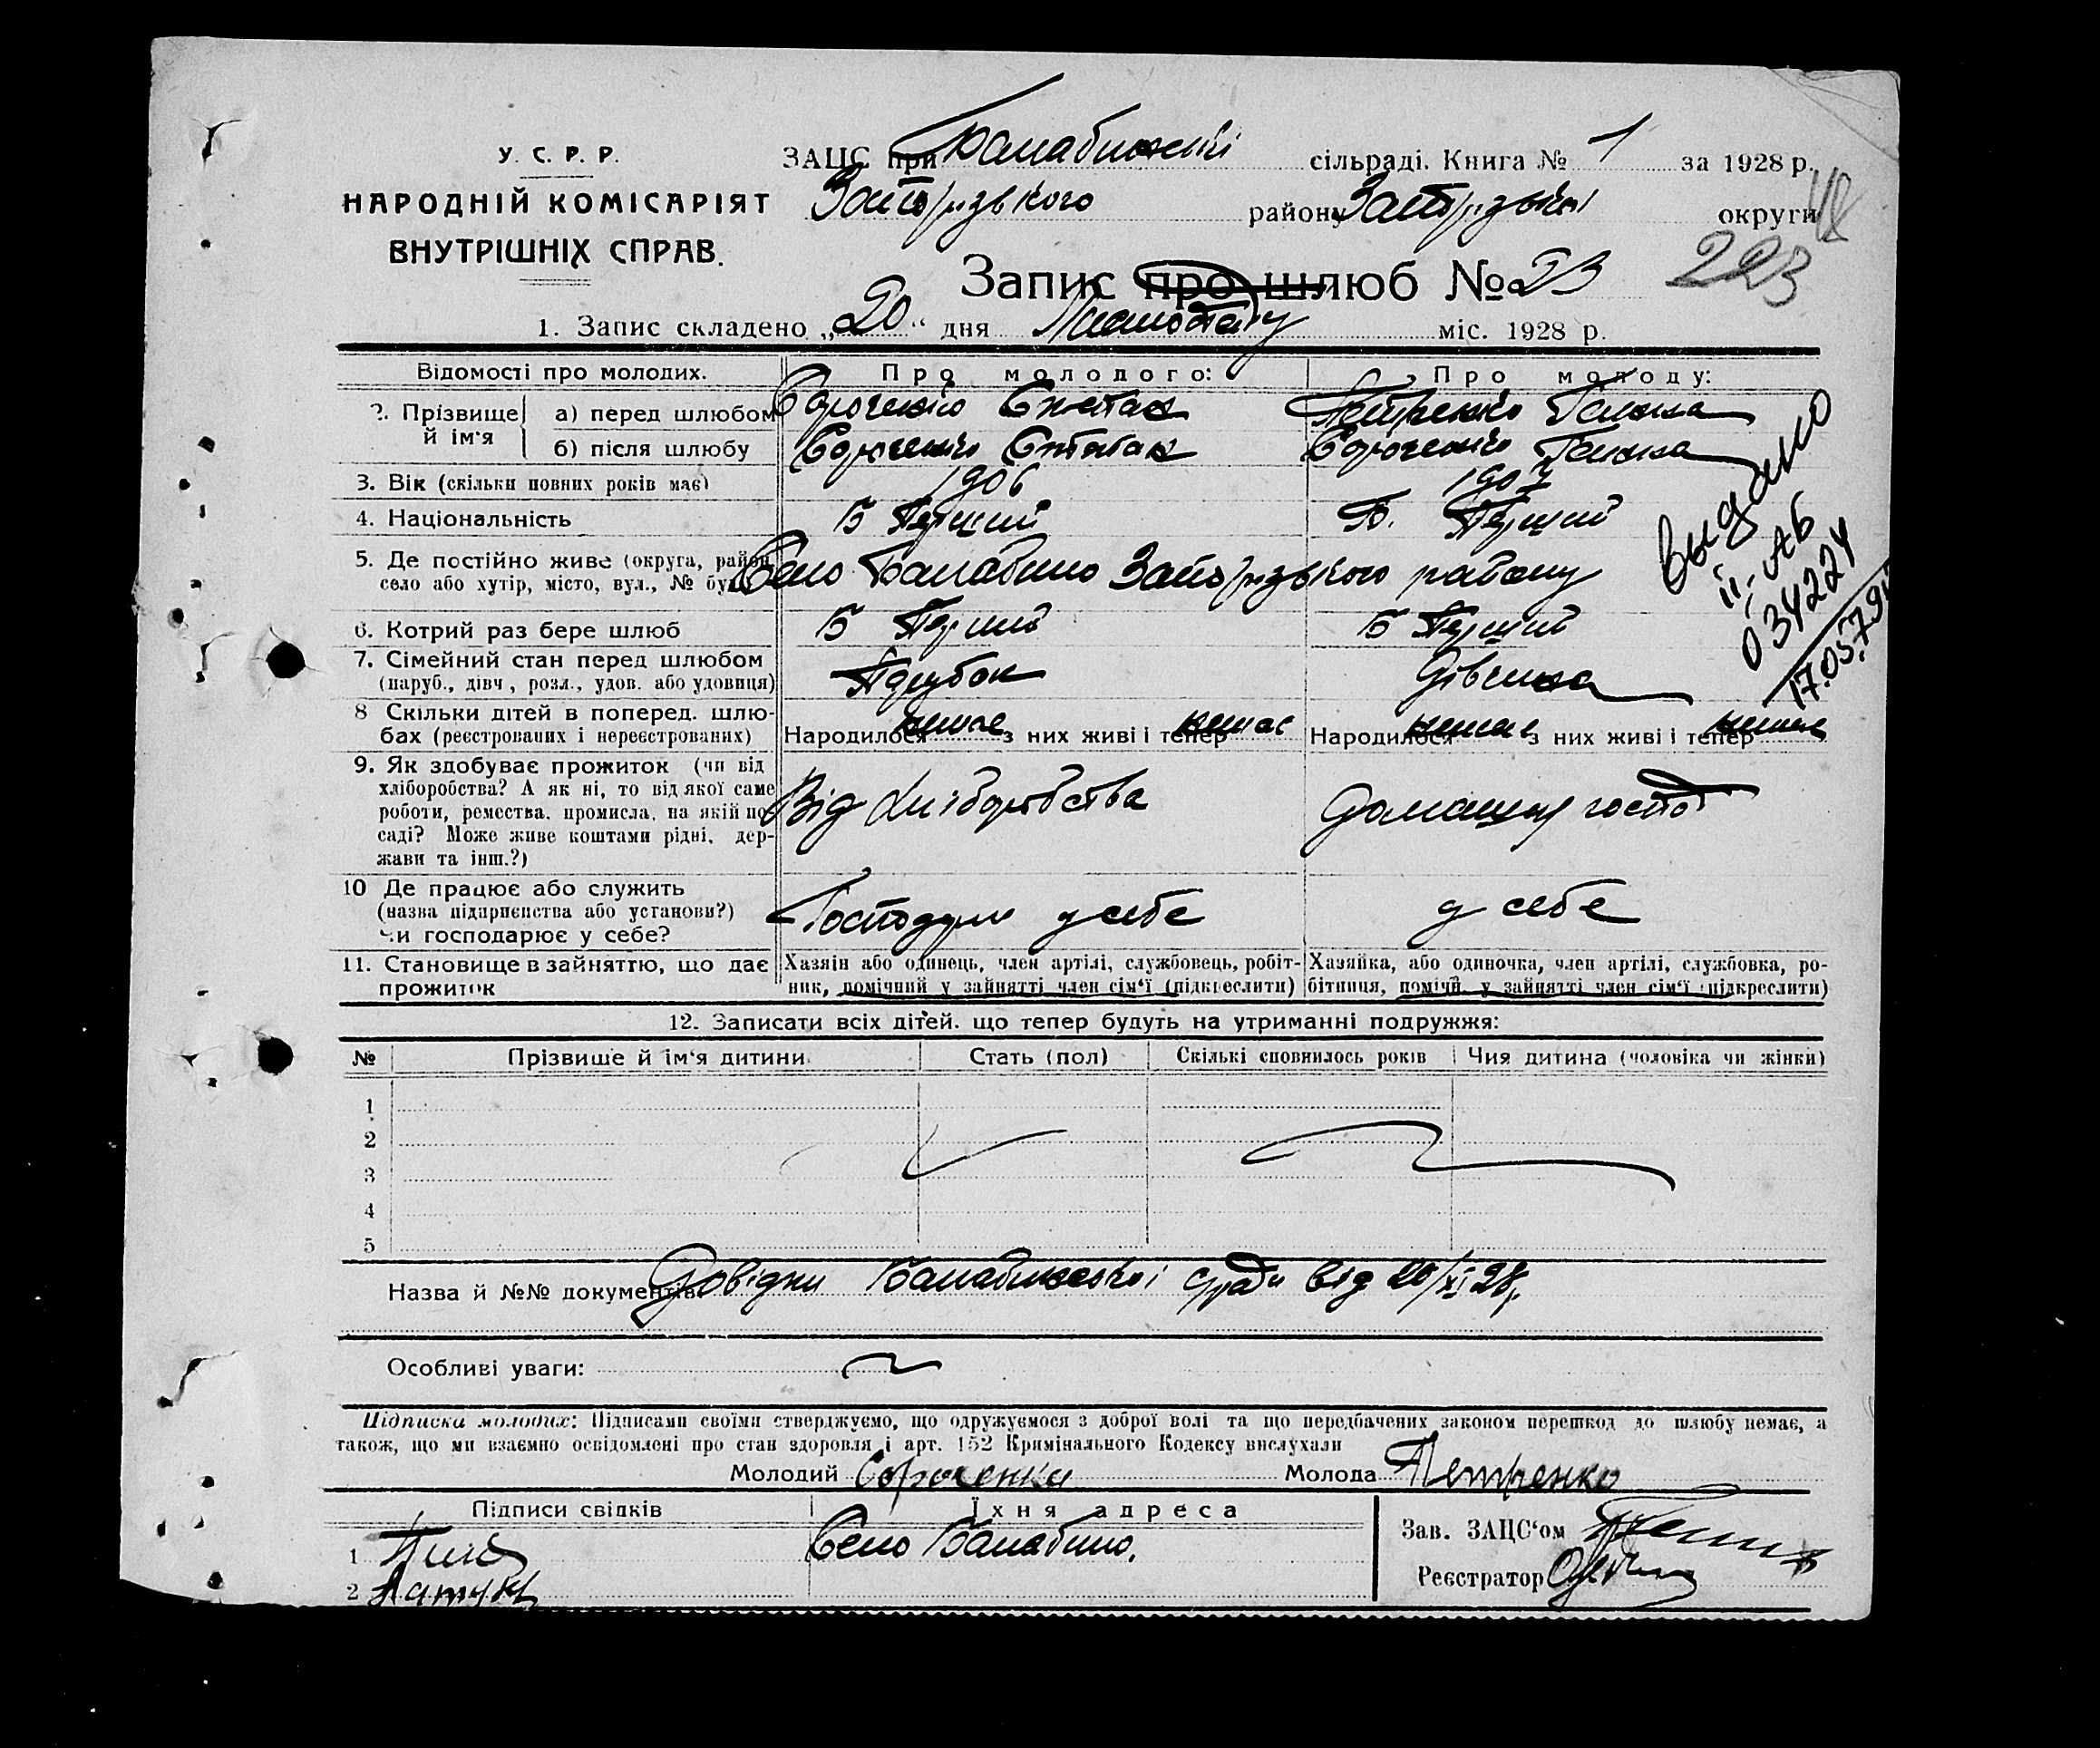 У. С. Р. Р.
НАРОДНІЙ КОМІСАРІЯТ
ВНУТРІШНІХ СПРАВ.
ЗАЦС при Балабинській сільраді. Книга № 1 за 1928 р.
Запорізького району Запорізької округи
223
Запис про шлюб № 23
1. Запис складено „20“ дня Листопаду міс. 1928 р.
Відомості про молодих. Про молодого: Про молоду:
2. Прізвище й ім'я
а) перед шлюбом Петренко Ганна
б) після шлюбу Ганна
3. Вік (скільки повних років має) 1906 1907
4. Національність
5. Де постійно живе (округа, район, село або хутір, місто, вул., № буд.) Село Балабино Запорізького району
6. Котрий раз бере шлюб Перший
7. Сімейний стан перед шлюбом Парубок Дівчина
(паруб., дівч., розл., удов. або удовиця)
8 Скільки дітей в поперед. шлюбах (реєстрованих і нереєстрованих) Народилося немає з них живі і тепер немає Народилося немає з них живі і тепер немає
9. Як здобуває прожиток (чи від
хліборобства? А як ні, то від якої саме
роботи, ремества, промисла, на якій по-
саді? Може живе коштами рідні, дер-
жави та інш.?)
Від хліборобства
Домашнє господ
10 Де працює або служить
(назва підприєнства або установи?)
Чи господарює у себе?
у себе
у себе
11. Становище в зайняттю, що дає прожиток
Хазяїн або одинець, член артілі, службовець, робіт-
ник, помічний у зайнятті член сім'ї (підкреслити)
Хазяйка, або одиночка, член артілі, службовка, ро-
бітниця, помічн. у зайнятті член сім'ї (підкреслити)
выдано
II-АБ
034224
12. Записати всіх дітей. що тепер будуть на утриманні подружжя:
№ Прізвище й ім'я дитини Стать (пол) Скількі сповнилось років Чия дитина (чоловіка чи жінки)
1
2
3
4
5
Назва й №№ документів Довідки Балабинської с/ради від 20/XI 28р.
Особливі уваги:
Підписка молодих: Підписами своїми стверджуємо, що одружуємося з доброї волі та що передбачених законом перешкод до шлюбу немає, а
також, що ми взаємно освідомлені про стан здоровля і арт. 152 Кримінального Кодексу вислухали
Молодий Молода Петренко
Підписи свідків Їхня адреса
1 Село Балабино.
2
Зав. ЗАЦС'ом
Реєстратор